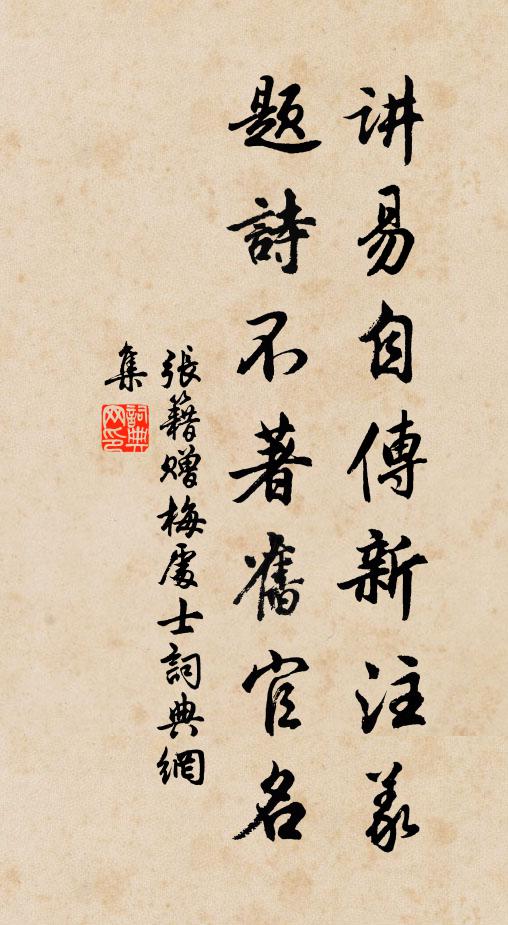 讲易自傳新注義
題詩不著舊官名
張籍贈梅處士詞典網
集
詞典网印